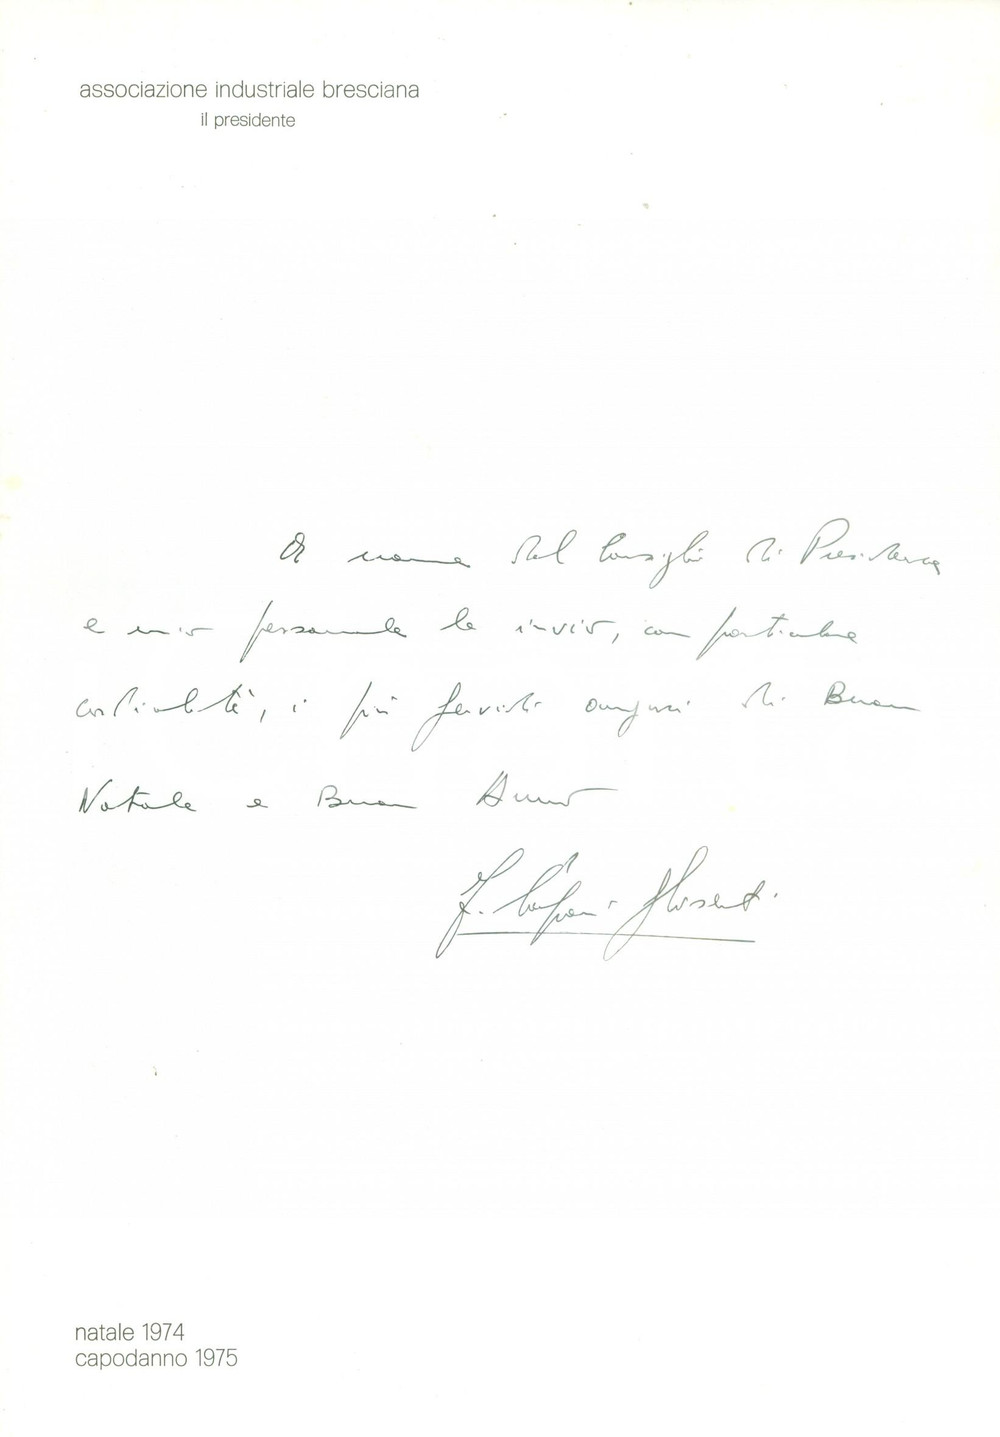 associazione industriale bresciana
il presidente
A nome del Consiglio di Presidenza
e mio personale le invio, con particolare
cordialità, i più fervidi auguri di Buon
Natale e Buon Anno
F. Camponi Ghisenti
natale 1974
capodanno 1975